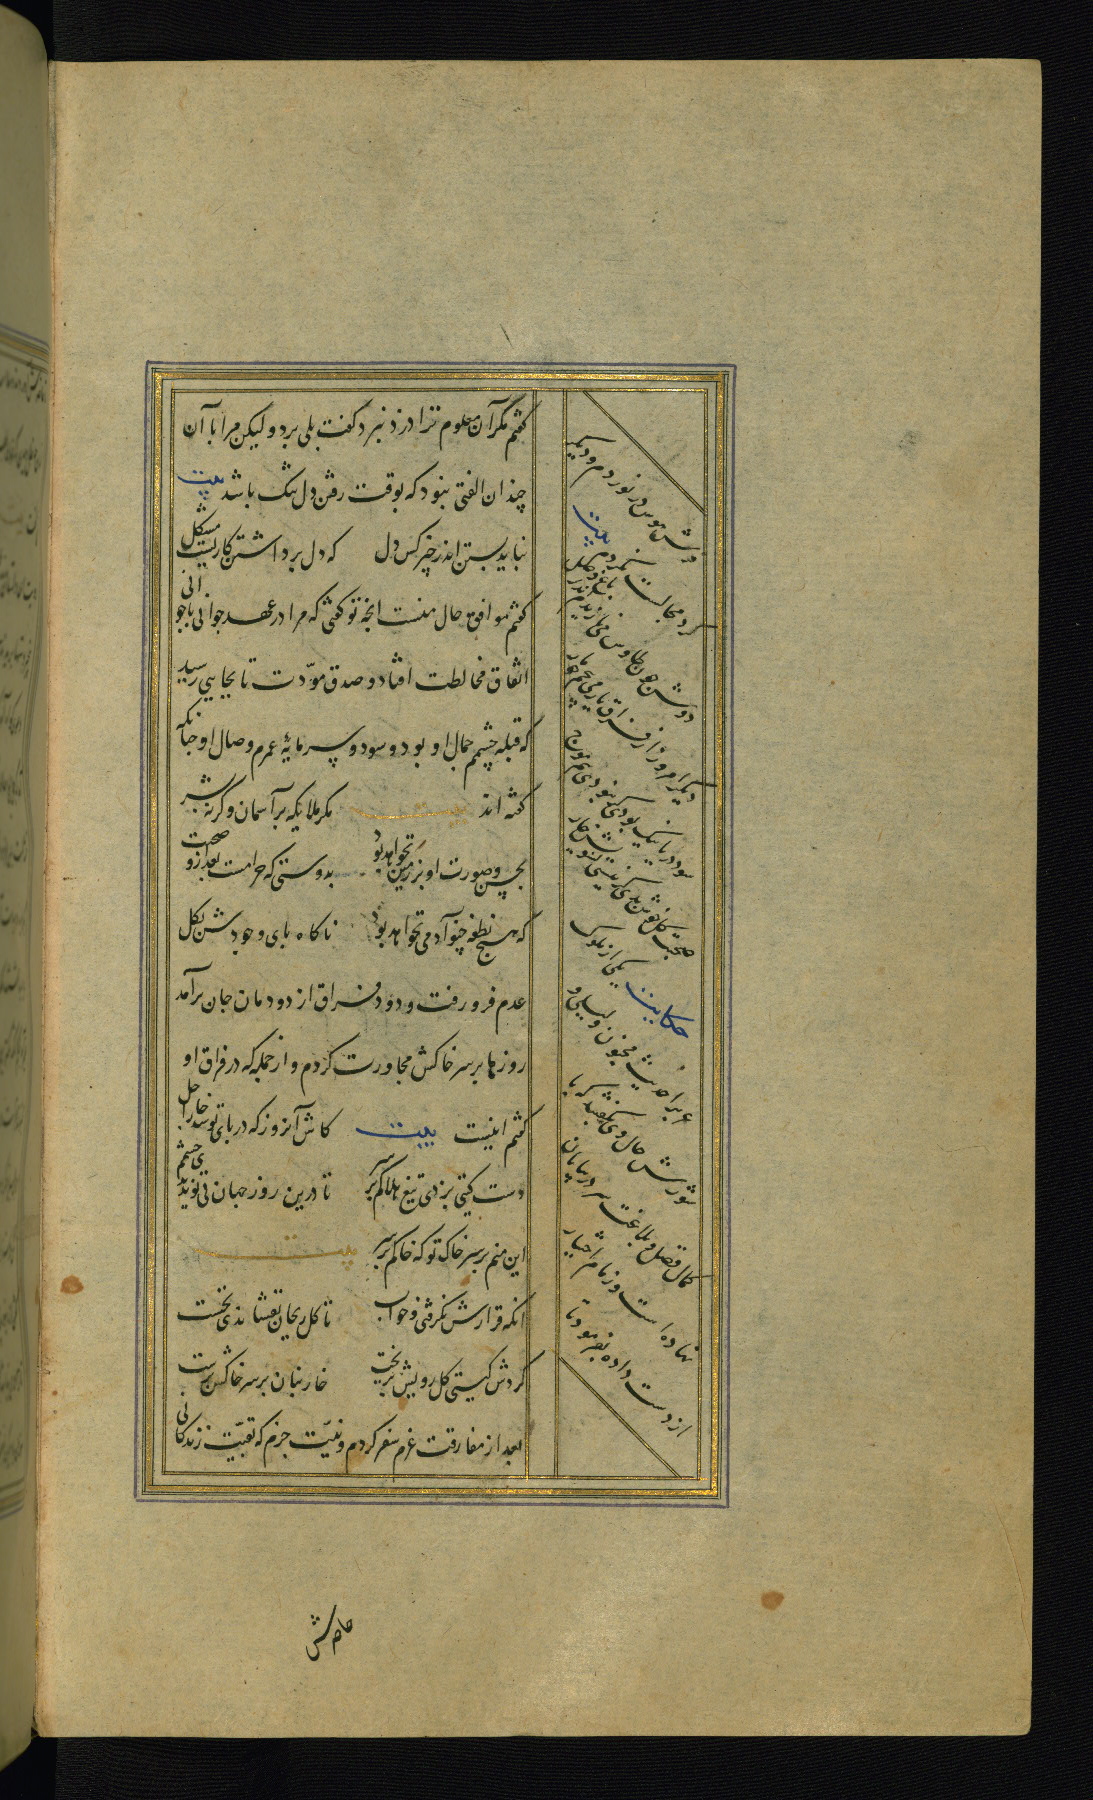 گفتم مگر آن معلوم ترا دزد نبرد گفت بلی برد ولیکن مرا با آن
چندان الفتی نبود که بوقت رفتن دل تنگ باشد بیت
نباید بستن اندر چیز کس دل که دل برداشتن کاریست مشکل
گفتم موافق حال منست انچه تو گفتی که مرا در عهد جوانی با جوانی
اتفاق مخالطت افتاد و صدق مودّت تا بجایی رسید
که قبله چشمم جمال او بود و سود و سرمایهٔ عمرم وصال او چنانکه
گفته اند بیت مگر ملایکه بر آسمان وگرنه بشر
بحسن وصورت او بر زمین نخواهد بود بدوستی که حرامست بعد ازو صحبت
که هیچ نطفه چنو آدمی نخواهد بود ناکاه پای وجودش بکل
عدم فرو رفت و دود فراق از دودمان جان برآمد
روزها بر سر خاکش مجاورت کردم و از جمله که در فراق او
گفتم اینست بیت کاش آنروز که در پای تو شد خار اجل
دست کیتی بزدی تیغ هلاکم بر سر تا درین روز جهان بی تو ندیدی چشمم
این منم بر سر خاک تو که خاکم بر سر بیت
انکه قرارش نگرفتی و خواب تا کل ریحان نفشاندی نخست
کردش کیتی کل رویش بریخت خار بنان بر سر خاکش برست
بعد از مفارقت عزم سفر کردم و نیّت جزم که بقیّت زندکانی
فرش هوس در نوردم و دیگر
کرد مجالست نگردم بیت
دوش چون طاوس می نازیدم اندر باغ وصل
دیگر امروز از فراق یار می پیچم چو مار
سود دریا نیک بودی گر نبودی بیم موج
صحبت گل خوش بدی گر نیستی تشویش خار
حکایت یکی از ملوک
عرب را حدیث مجنون و لیلی و
شورش حال وی بگفتند که با
کمال فضل و بلاغت سر در بیابان
نهاده است و زمام اختیار
از دست داده بفرمود تا
حاضرش